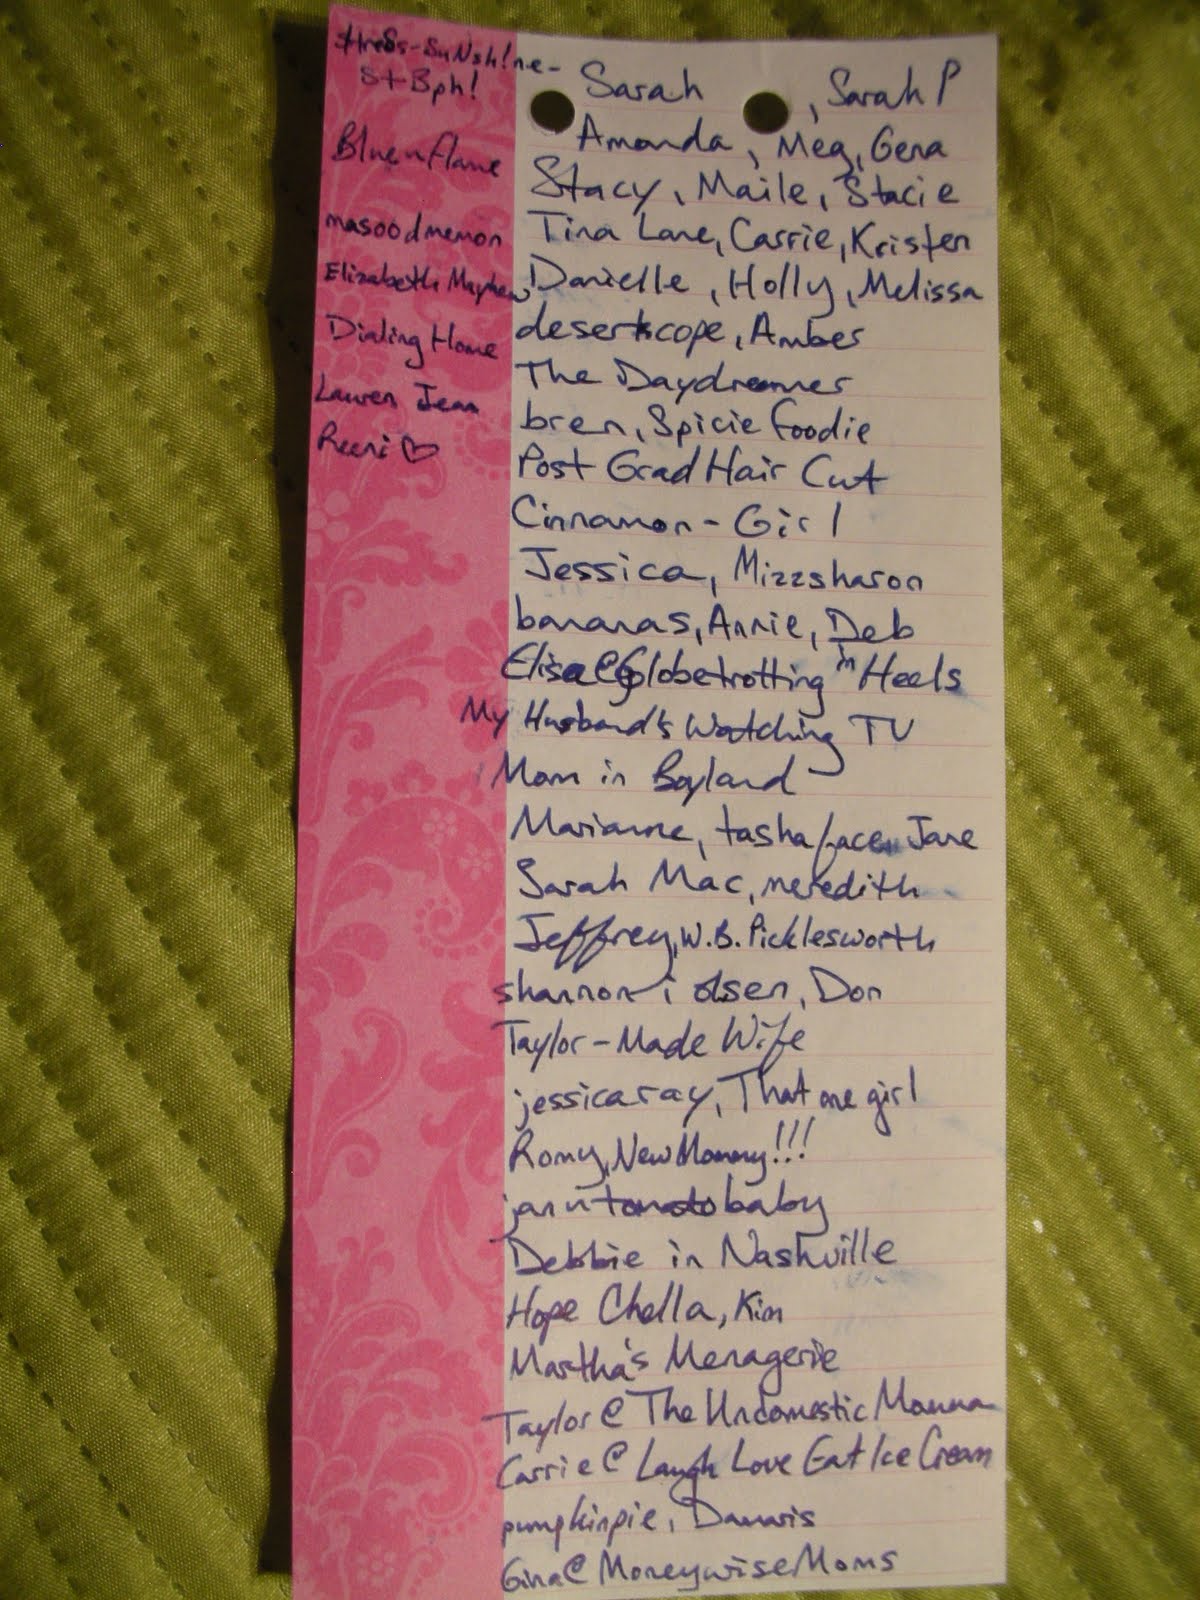 St Bph!
Blue n flame
masoodmemon
Elizabeth Mayhew
Dialing Home
Lauren Jean
Reeni
Sarah , Sarah P
Amanda, Meg, Gena
Stacy, Maile, Stacie
Tina Lane, Carrie, Kristen
Danielle, Holly, Melissa
desertscope, Amber
The Daydreamer
bren, Spicie Foodie
Post Grad Hair Cut
Cinnamon-Girl
Jessica, Mizzsharon
bananas, Annie, Deb
Elisa@Globetrotting in Heels
My Husband's Watching TV
Mom in Boyland
Marianne, tashaface, Jane
Sarah Mac, meredith
Jeffrey, W.B. Picklesworth
shannon i olsen, Don
Taylor-Made Wife
jessicaray, That one girl
Romy, New Mommy!!!
baby
Debbie in Nashville
Hope Chella, Kim
Martha's Menagerie
Taylor@The Undomestic Momma
Carrie@Laugh Love Eat Ice Cream
pumpkinpie, Damaris
Gina@MoneywiseMoms